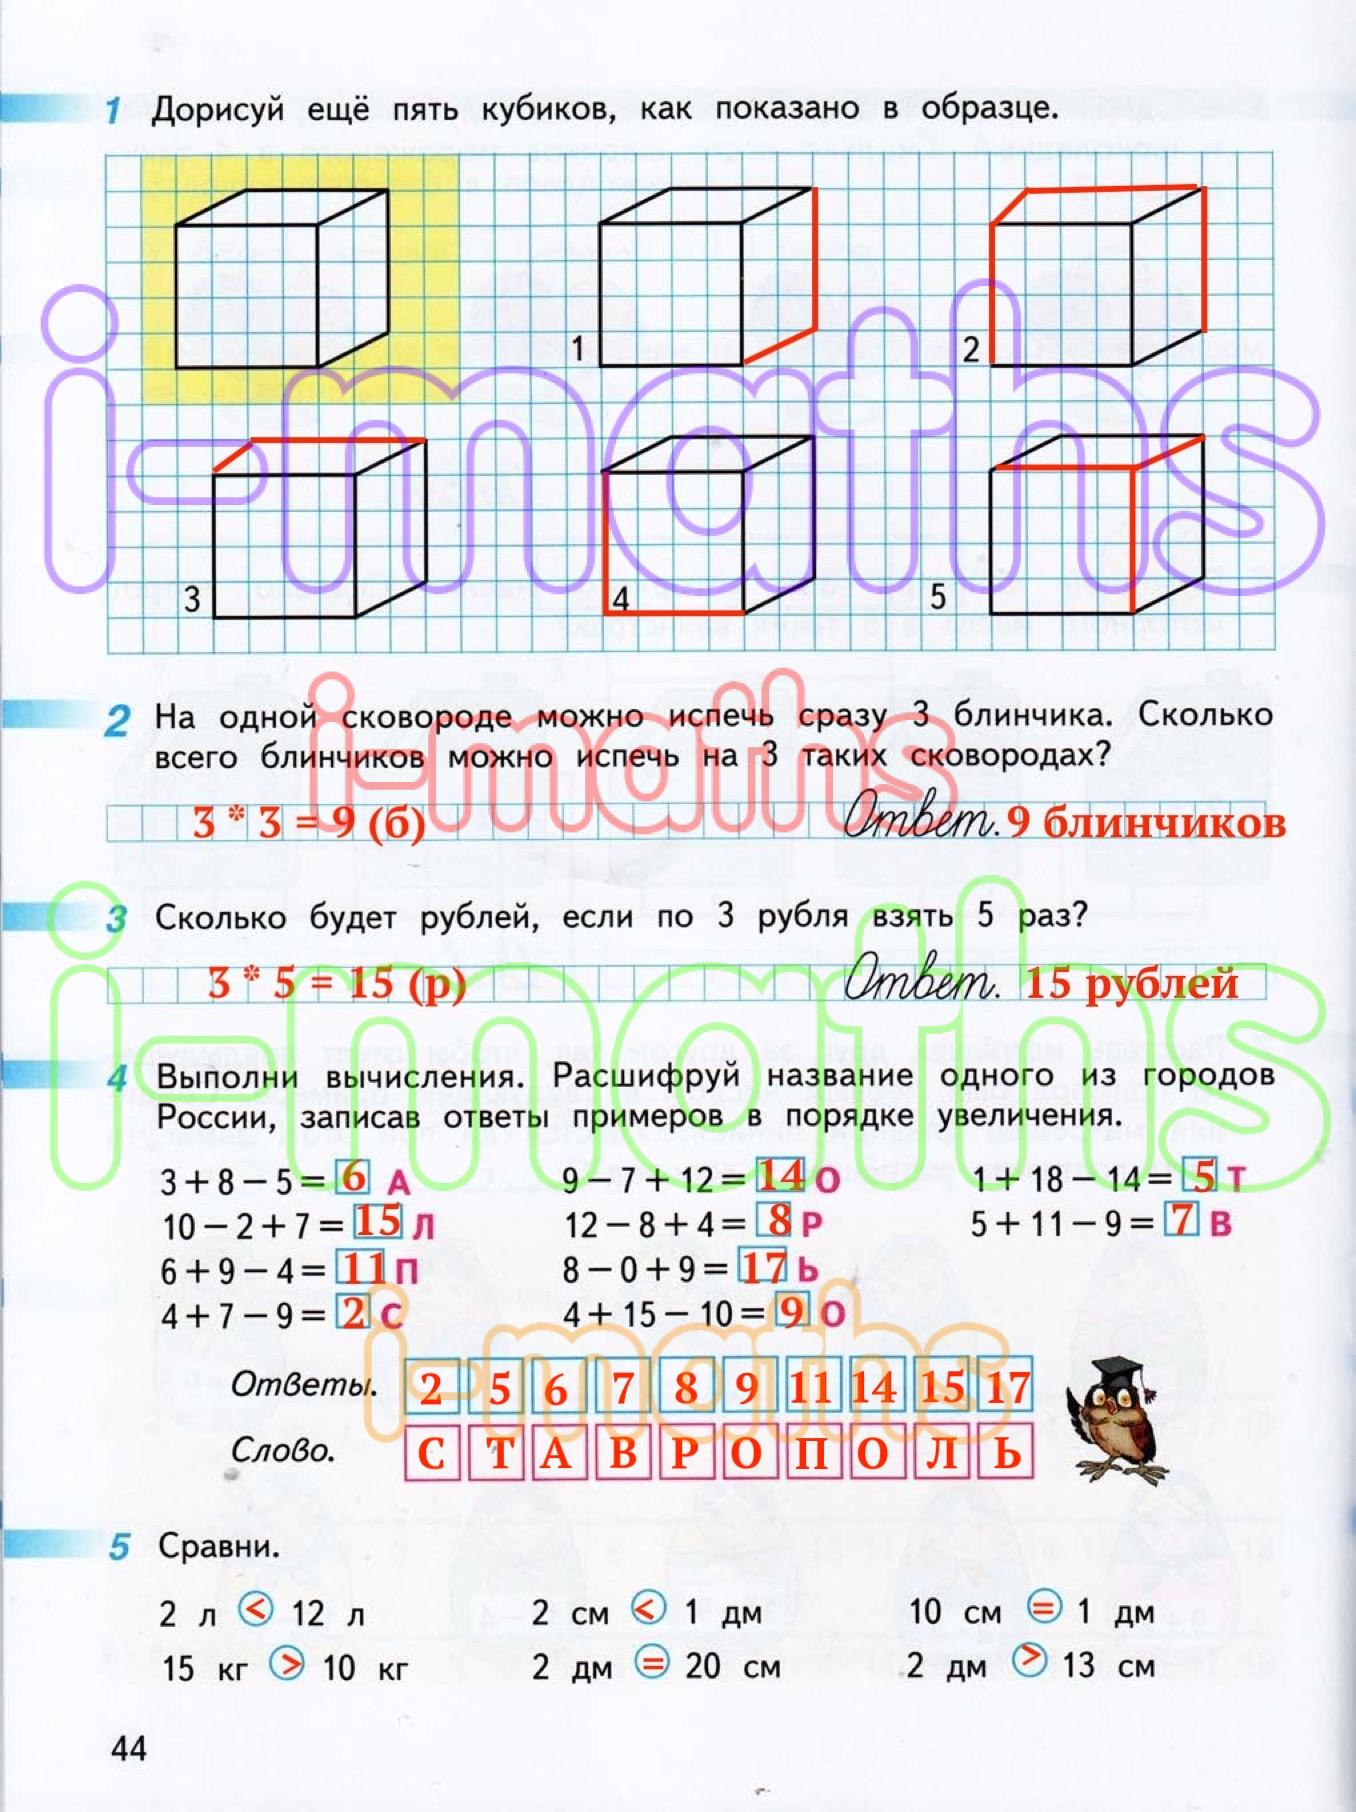 1 Дорисуй ещё пять кубиков, как показано в образце.
1
2
3
4
5
i-maths
2 На одной сковороде можно испечь сразу 3 блинчика. Сколько
всего блинчиков можно испечь на 3 таких сковородах?
i-maths
3 * 3 = 9 (б) Ответ. 9 блинчиков
3 Сколько будет рублей, если по 3 рубля взять 5 раз?
3 * 5 = 15 (р) Ответ. 15 рублей
i-maths
4 Выполни вычисления. Расшифруй название одного из городов
России, записав ответы примеров в порядке увеличения.
3 + 8 − 5 = 6 А 9 − 7 + 12 = 14 О 1 + 18 − 14 = 5 Т
10 − 2 + 7 = 15 Л 12 − 8 + 4 = 8 Р 5 + 11 − 9 = 7 В
6 + 9 − 4 = 11 П 8 − 0 + 9 = 17 Ь
4 + 7 − 9 = 2 С 4 + 15 − 10 = 9 О
i-maths
Ответы. 2 5 6 7 8 9 11 14 15 17
Слово. С Т А В Р О П О Л Ь
5 Сравни.
2 л < 12 л 2 см < 1 дм 10 см = 1 дм
15 кг > 10 кг 2 дм = 20 см 2 дм > 13 см
44